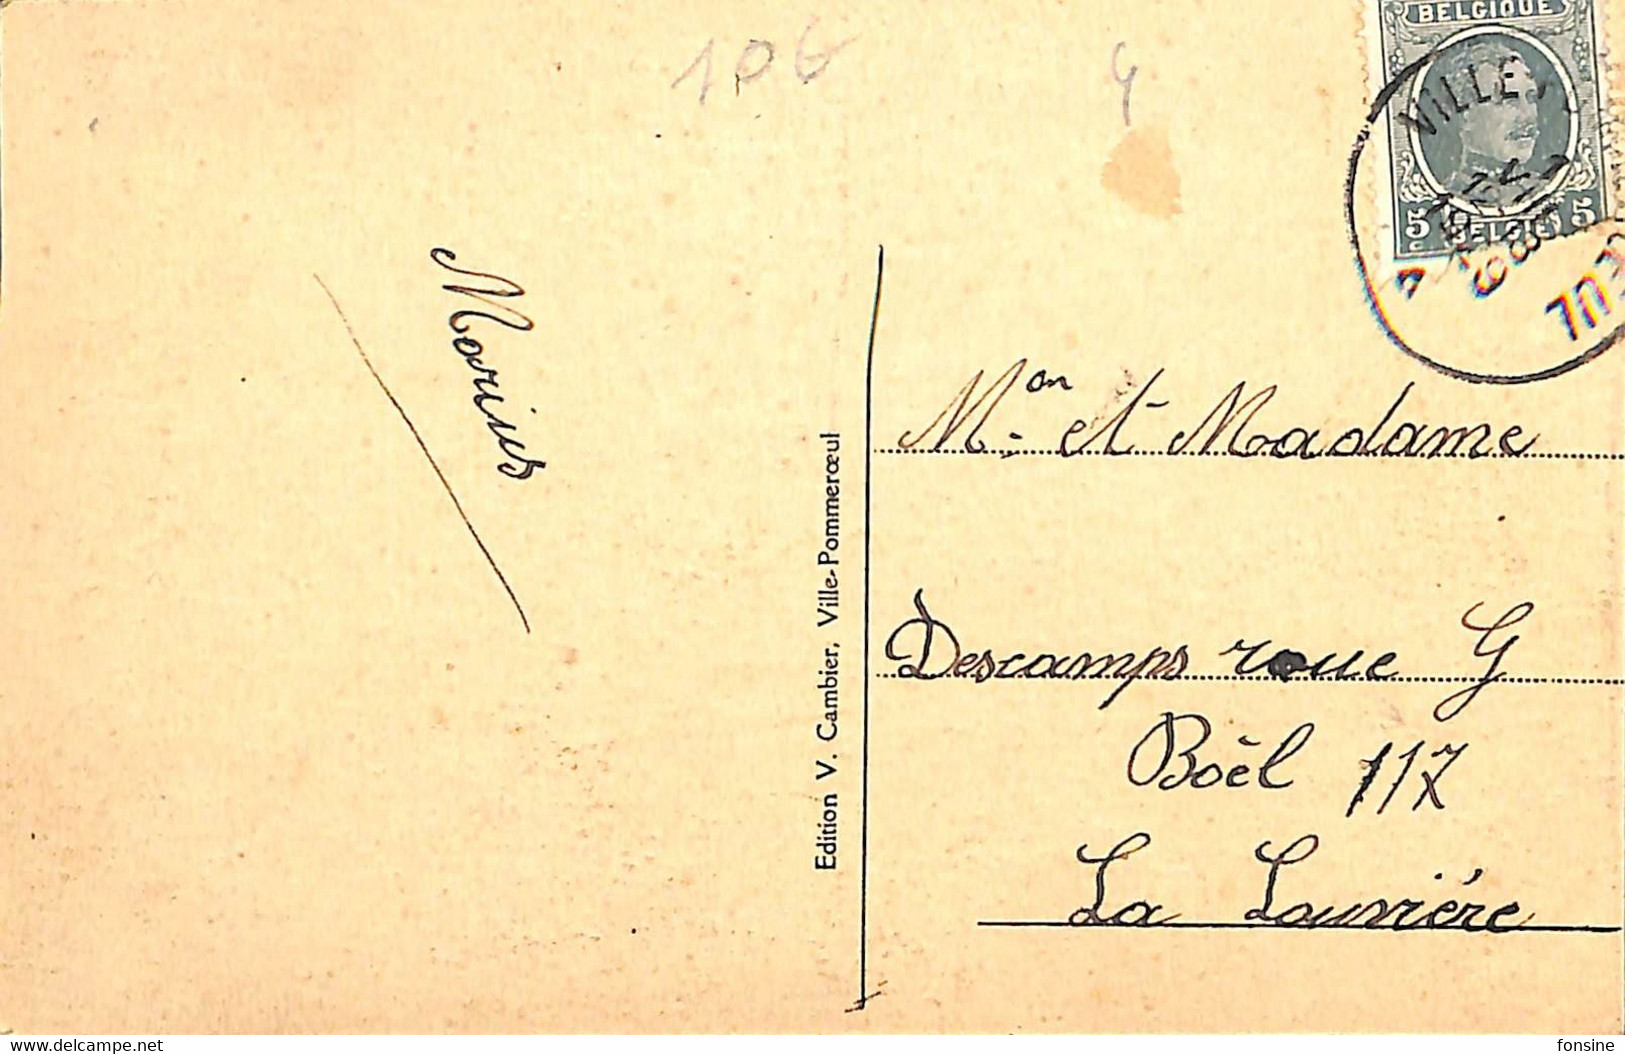 10€
4
BELGIQUE
5 BELGIE 5
C
VILLE
Marius
Edition V. Cambier, Ville-Pommerœul
Mon et Madame
Descamps roue G
Boël 117
La Louvière
www.delcampe.net
fonsine